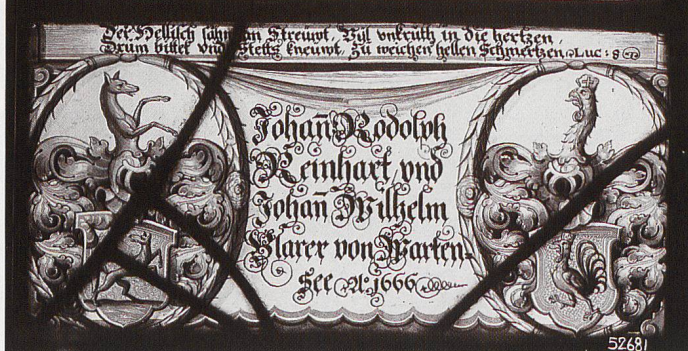 Der Hellisch sahman Streuwt, Vyl vnkruth in die hertzen,
Drum bittet vnd stetts kneuwt, Zu weichen hellen Schmertzen Luc: 8
Johañ Rodolph
Reinhart vnd
Johañ Wilhelm
Blarer von Warten-
See A⁰ 1666
52681